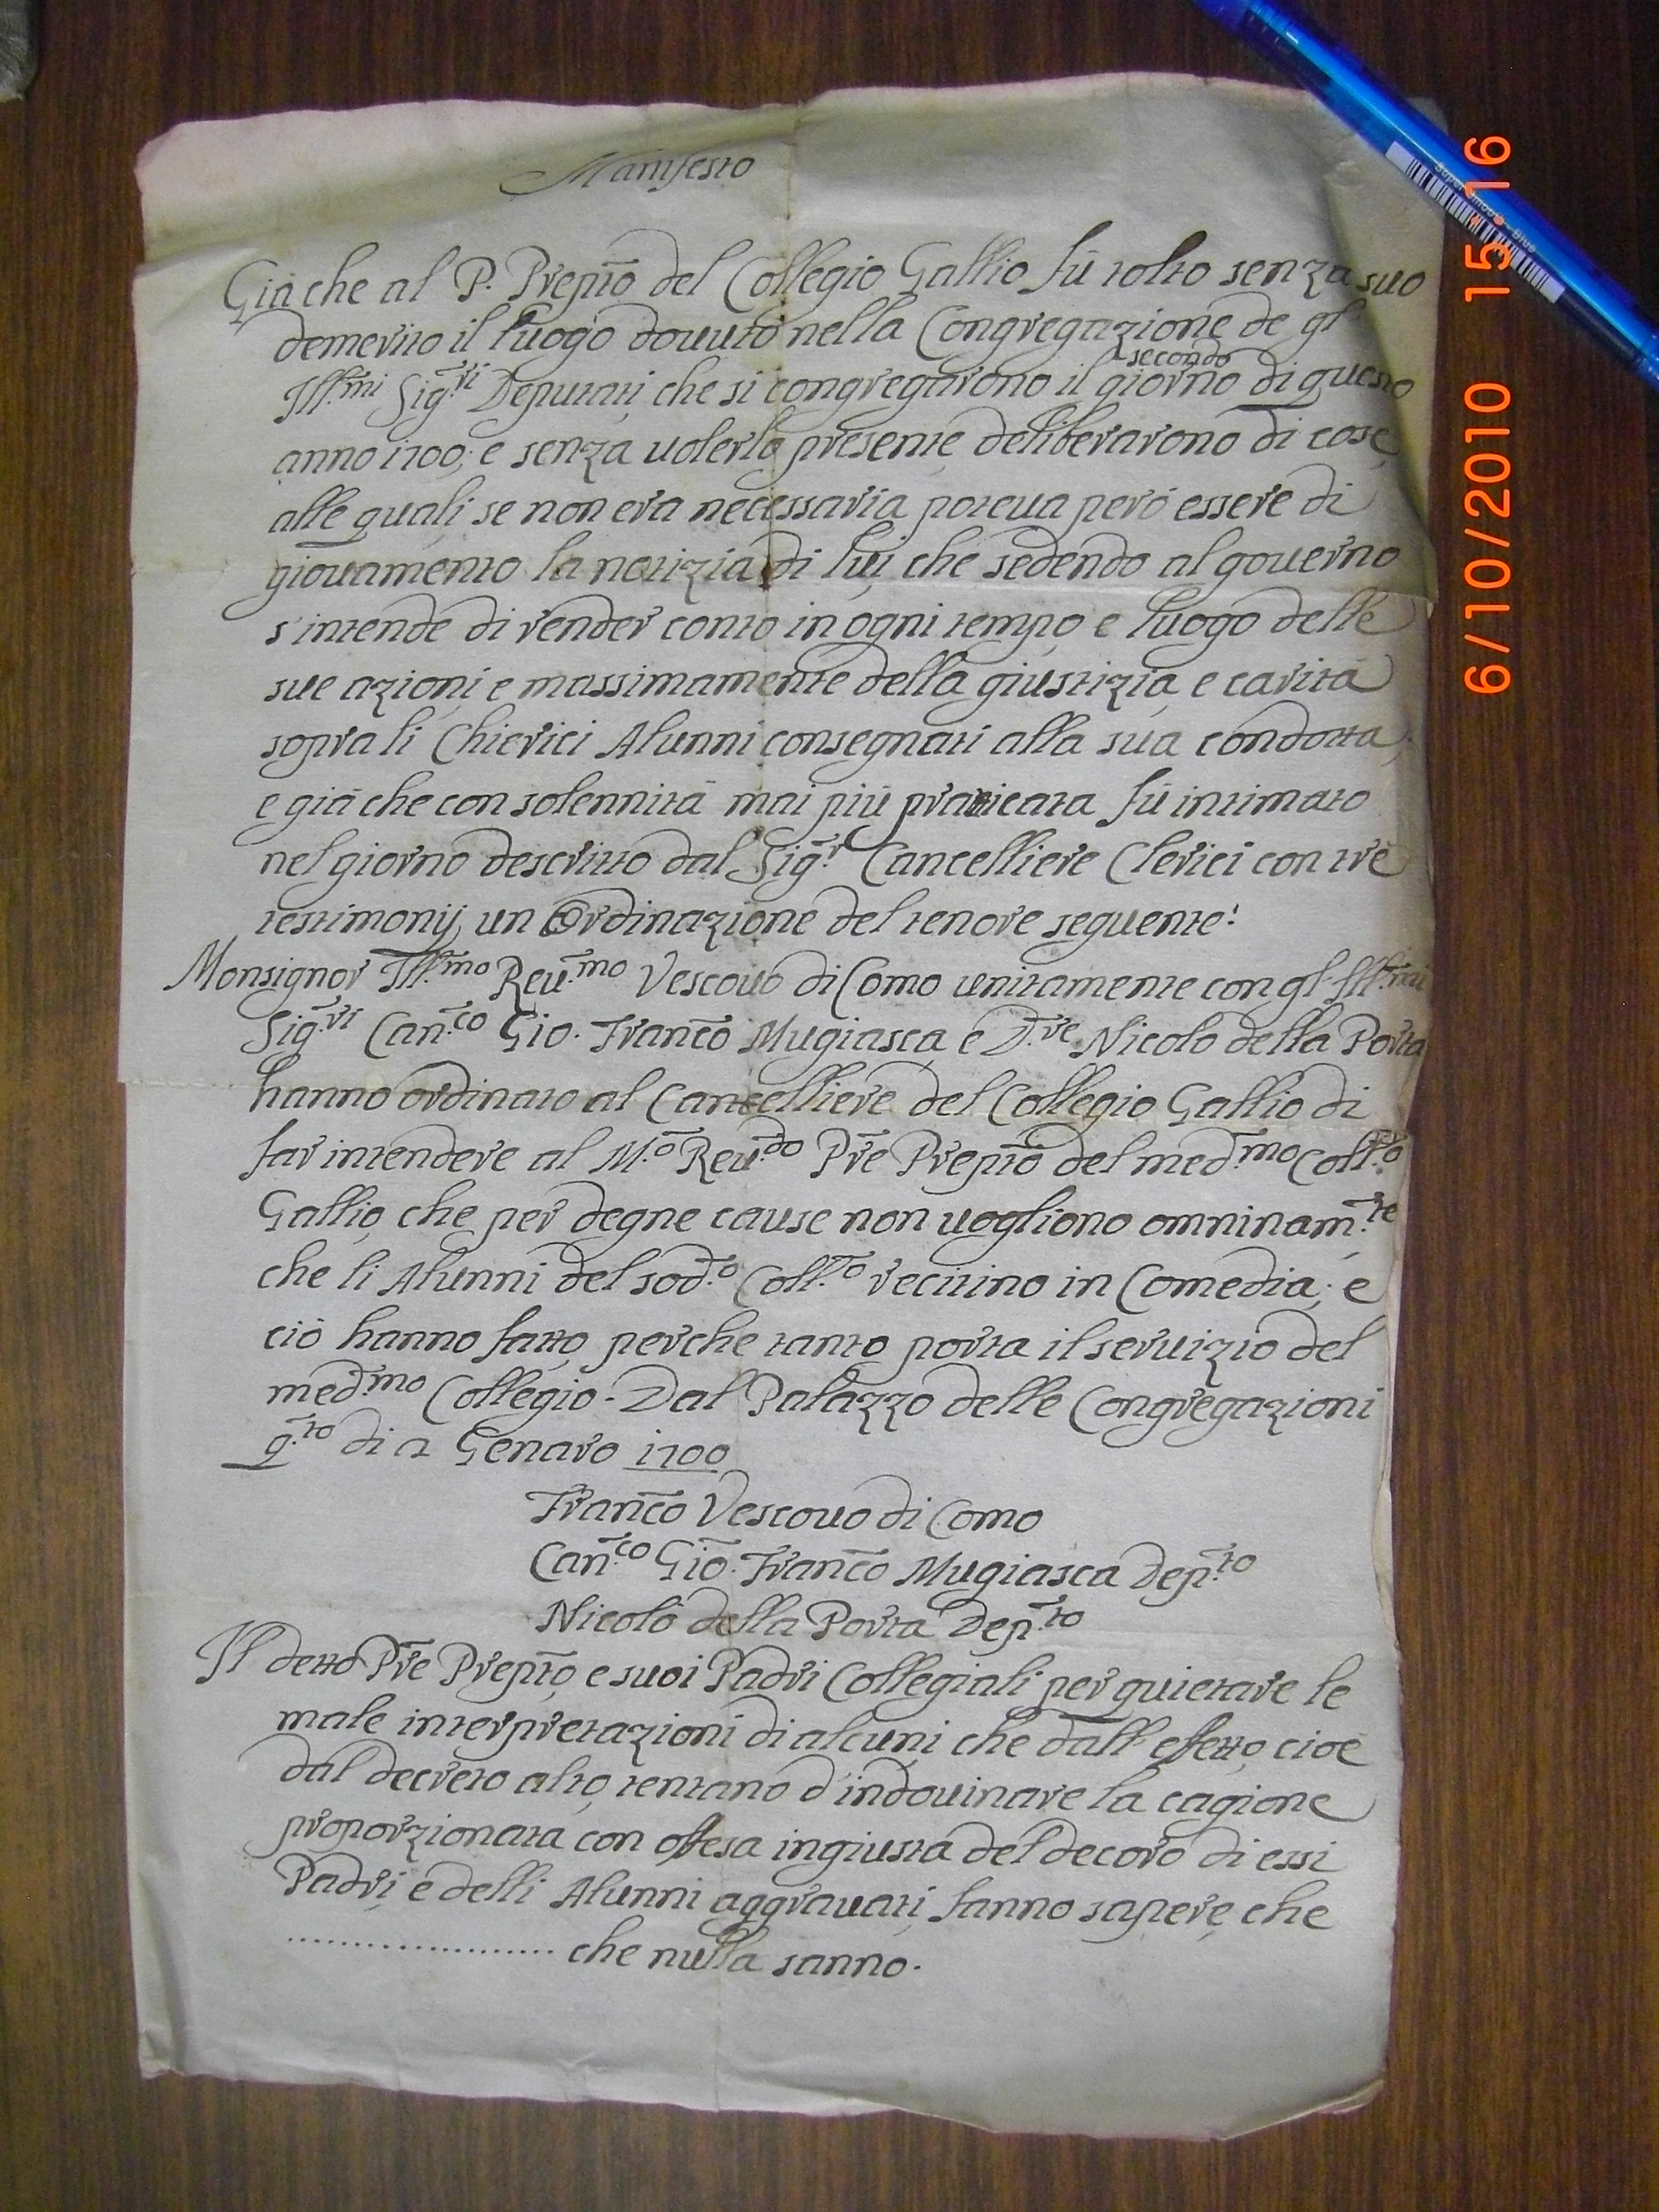 Manifesto
Giàche al P. Prepto del Collegio Gallio fù tolto senza suo
demerito il luogo douuto nella Congregazione de gl'
Ill.mi Sig.ri Deputati, che si congregarono il secondo giorno di questo
anno 1700; e senza uolerlo presente, deliberarono di cose,
alle quali, se non era necessaria poteua però essere di
giouamento la notizia di lui, che sedendo al gouerno
s'intende di render conto in ogni tempo, e luogo delle
sue azioni, e massimamente della giustizia, e carità
sopra li Chierici Alunni consegnati alla sua condotta;
e già che con solennità mai più praticata fù intimato
nel giorno descritto dal Sig.r Cancelliere Clerici con trè
testimonij, un Ordinazione del tenore seguente:
Monsignor Ill.mo Reu.mo Vescouo di Como unitamente con gl' Ill.mi
Sig.ri Can.co Gio. Franco Mugiasca, e D.re Nicolo della Porta
hanno ordinato al Cancelliere del Collegio Gallio di
far intendere al M.o Reu.do Pre Prepto del med.mo Coll.o
Gallio, che per degne cause non uogliono omninam.te,
che li Alunni del sod.o Coll.o recitino in Comedia; e
ciò hanno fatto, perche tanto porta il seruizio del
med.mo Collegio. Dal Palazzo delle Congregazioni
q.to di 2 Genaro 1700
Franco Vescouo di Como
Can.co Gio. Franco Mugiasca Dep.to
Nicolò della Porta Dep.to
Il detto Pre Prepto, e suoi Padri Collegiali per quietare le
male interpretazioni di alcuni, che dall' effetto, cioè
dal decreto alto, tentano d'indouinare la cagione
proporzionata con offesa ingiusta del decoro di essi
Padri, e delli Alunni aggrauati, fanno sapere, che
..................... che nulla sanno.
6/10/2010 15:16